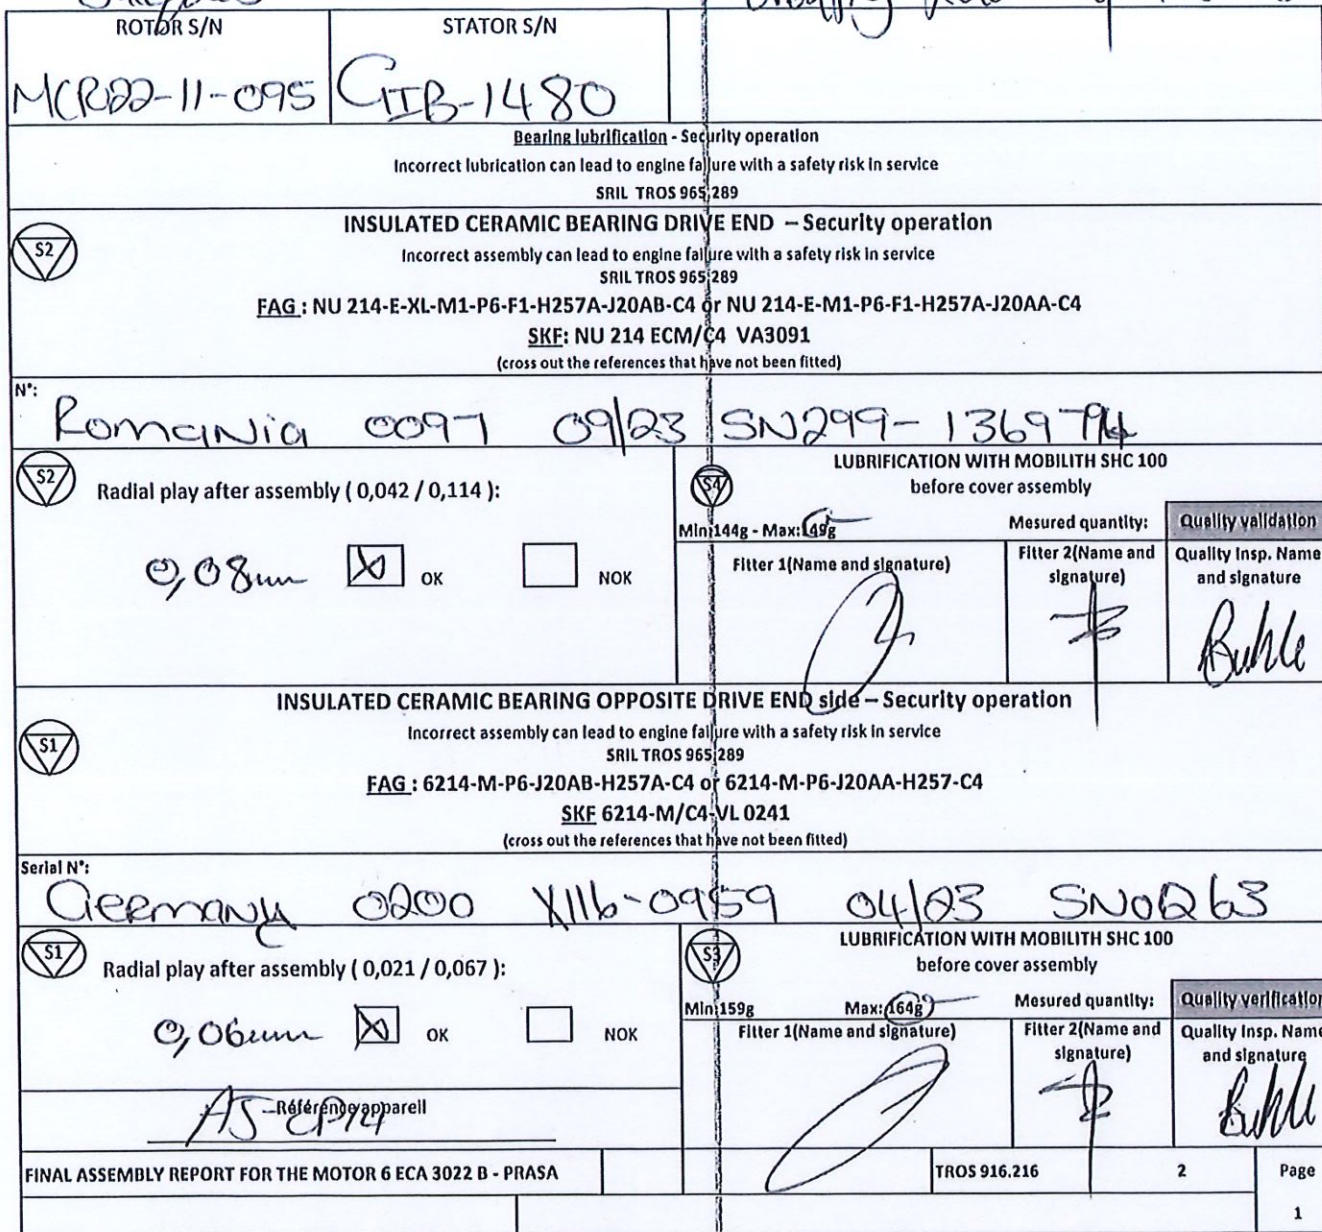 ROTOR S/N STATOR S/N
MCR22-11-095 GIIB-1480
Bearing lubrification - Security operation
Incorrect lubrication can lead to engine failure with a safety risk in service
SRIL TROS 965 289
S2
INSULATED CERAMIC BEARING DRIVE END – Security operation
Incorrect assembly can lead to engine failure with a safety risk in service
SRIL TROS 965 289
FAG : NU 214-E-XL-M1-P6-F1-H257A-J20AB-C4 or NU 214-E-M1-P6-F1-H257A-J20AA-C4
SKF: NU 214 ECM/C4 VA3091
(cross out the references that have not been fitted)
N°:
Romania 0097 09/23 SN299-1369794
S2
Radial play after assembly ( 0,042 / 0,114 ):
0,08mm OK NOK
S4
LUBRIFICATION WITH MOBILITH SHC 100
before cover assembly
Min:144g - Max:149g Mesured quantity: Quality validation
Fitter 1(Name and signature) Fitter 2(Name and signature) Quality Insp. Name and signature
Buhle
INSULATED CERAMIC BEARING OPPOSITE DRIVE END side – Security operation
S1
Incorrect assembly can lead to engine failure with a safety risk in service
SRIL TROS 965 289
FAG : 6214-M-P6-J20AB-H257A-C4 or 6214-M-P6-J20AA-H257-C4
SKF 6214-M/C4-VL 0241
(cross out the references that have not been fitted)
Serial N°:
Germany 0200 X116-0959 04/23 SN0263
S1
Radial play after assembly ( 0,021 / 0,067 ):
0,06mm OK NOK
Référence appareil
S3
LUBRIFICATION WITH MOBILITH SHC 100
before cover assembly
Min:159g Max:164g Mesured quantity: Quality verification
Fitter 1(Name and signature) Fitter 2(Name and signature) Quality Insp. Name and signature
Buhle
FINAL ASSEMBLY REPORT FOR THE MOTOR 6 ECA 3022 B - PRASA TROS 916.216 2 Page
1